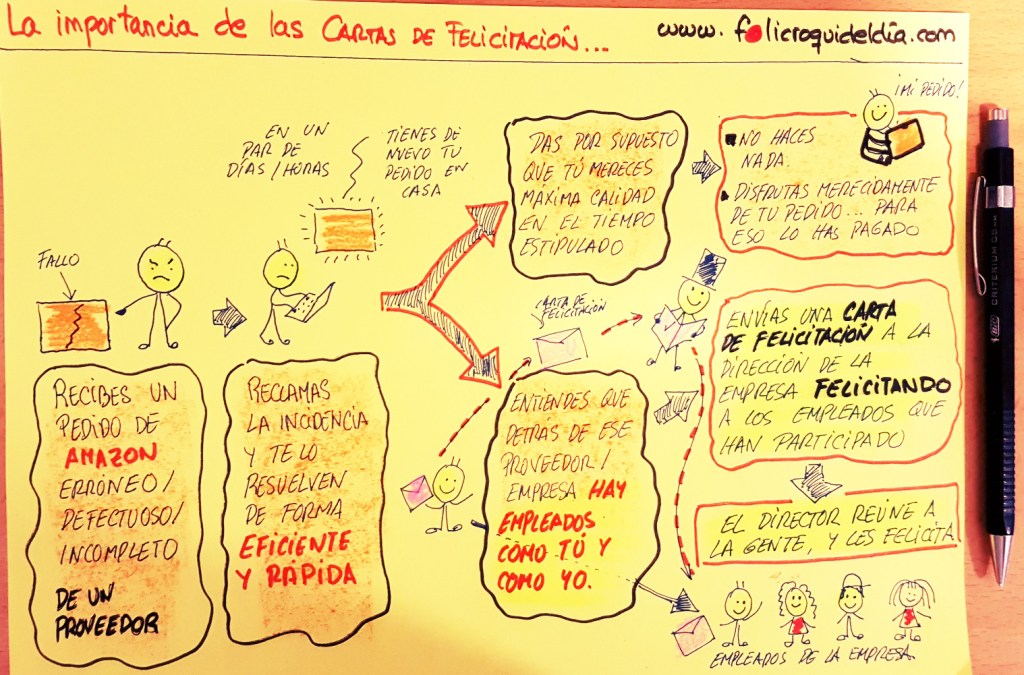 La importancia de las CARTAS DE FELICITACIÓN...
www.folicroquideldia.com
FALLO
EN UN
PAR DE
DÍAS/HORAS
TIENES DE
NUEVO TU
PEDIDO EN
CASA
RECIBES UN
PEDIDO DE
AMAZON
ERRÓNEO/
DEFECTUOSO/
INCOMPLETO
DE UN
PROVEEDOR
RECLAMAS
LA INCIDENCIA
Y TE LO
RESUELVEN
DE FORMA
EFICIENTE
Y RÁPIDA
DAS POR SUPUESTO
QUE TÚ MERECES
MÁXIMA CALIDAD
EN EL TIEMPO
ESTIPULADO
¡MI PEDIDO!
NO HACES
NADA.
DISFRUTAS MERECIDAMENTE
DE TU PEDIDO... PARA
ESO LO HAS PAGADO
CARTA DE
FELICITACIÓN
ENTIENDES QUE
DETRÁS DE ESE
PROVEEDOR/
EMPRESA HAY
EMPLEADOS
COMO TÚ Y
COMO YO.
ENVÍAS UNA CARTA
DE FELICITACIÓN A LA
DIRECCIÓN DE LA
EMPRESA FELICITANDO
A LOS EMPLEADOS QUE
HAN PARTICIPADO
EL DIRECTOR REÚNE A
LA GENTE, Y LES FELICITA
EMPLEADOS DE LA EMPRESA
BIC CRITERIUM